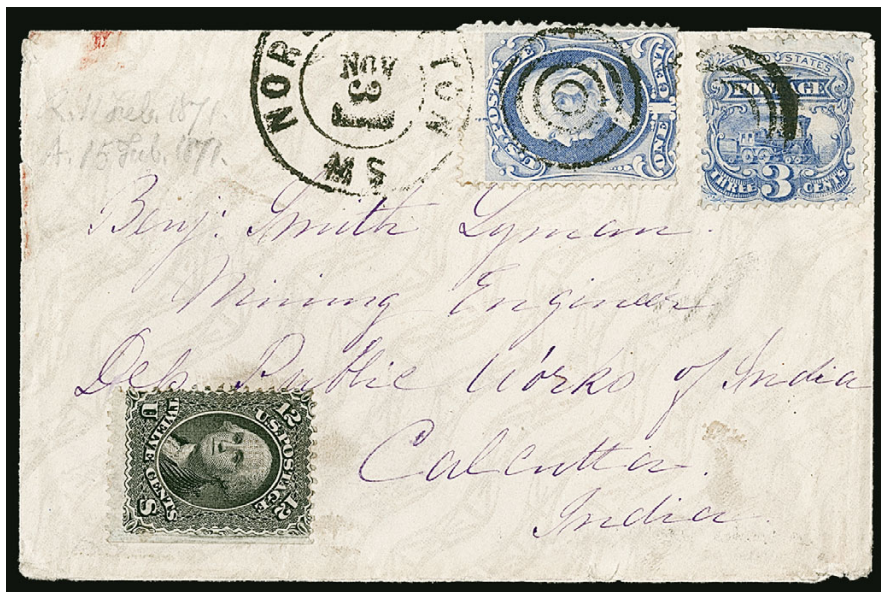 R. 11 Feb. 1871.
A. 15 Feb. 1871.
NOV
3
U.S. POSTAGE
ONE CENT
UNITED STATES
POSTAGE
THREE 3 CENTS
Benj: Smith Lyman.
Mining Engineer
Dep. Public Works of India
Calcutta.
India.
12 12
U.S. POSTAGE
TWELVE CENTS
U S